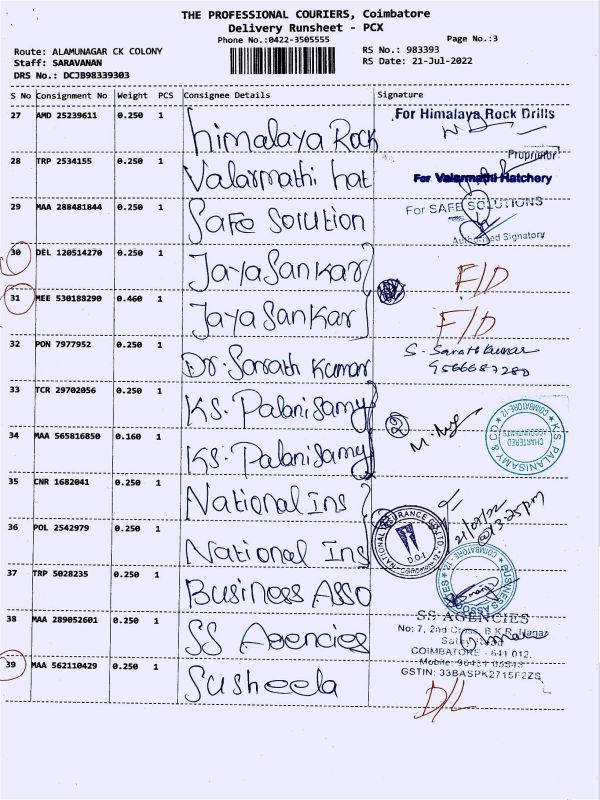 THE PROFESSIONAL COURIERS, Coimbatore
Delivery Runsheet - PCX
Phone No.:0422-3505555
Page No.:3
Route: ALAMUNAGAR CK COLONY
RS No.: 983393
Staff: SARAVANAN
RS Date: 21-Jul-2022
DRS No.: DCJB98339303
S No Consignment No Weight PCS Consignee Details Signature
27 AMD 25239611 0.250 1 himalaya Rock For Himalaya Rock Drills
Proprietor
28 TRP 2534155 0.250 1 Valarmathi hat For Valarmathi Hatchery
29 MAA 288481844 0.250 1 Safe Solution For SAFE SOLUTIONS
Authorised Signatory
30 DEL 120514270 0.250 1 JayaSankar F/D
31 MEE 530188290 0.460 1 JayaSankar F/D
32 PON 7977952 0.250 1 Dr. Sarath Kumar S. Sarath Kumar
9566687280
33 TCR 29702056 0.250 1 KS. Palanisamy
34 MAA 565816850 0.160 1 KS. Palanisamy 2
K.S. PALANISAMY & CO
CHARTERED ACCOUNTANTS
COIMBATORE-12
35 CNR 1682041 0.250 1 National Ins
21/07/22
@13:25pm
36 POL 2542979 0.250 1 National Ins
37 TRP 5028235 0.250 1 Business Asso
38 MAA 289052601 0.250 1 SS Agencies SS AGENCIES
No: 7, 2nd Cross, B.K.R. Nagar
COIMBATORE - 641 012.
39 MAA 562110429 0.250 1 Susheela
GSTIN: 33BASPK2715F2ZS
D/L